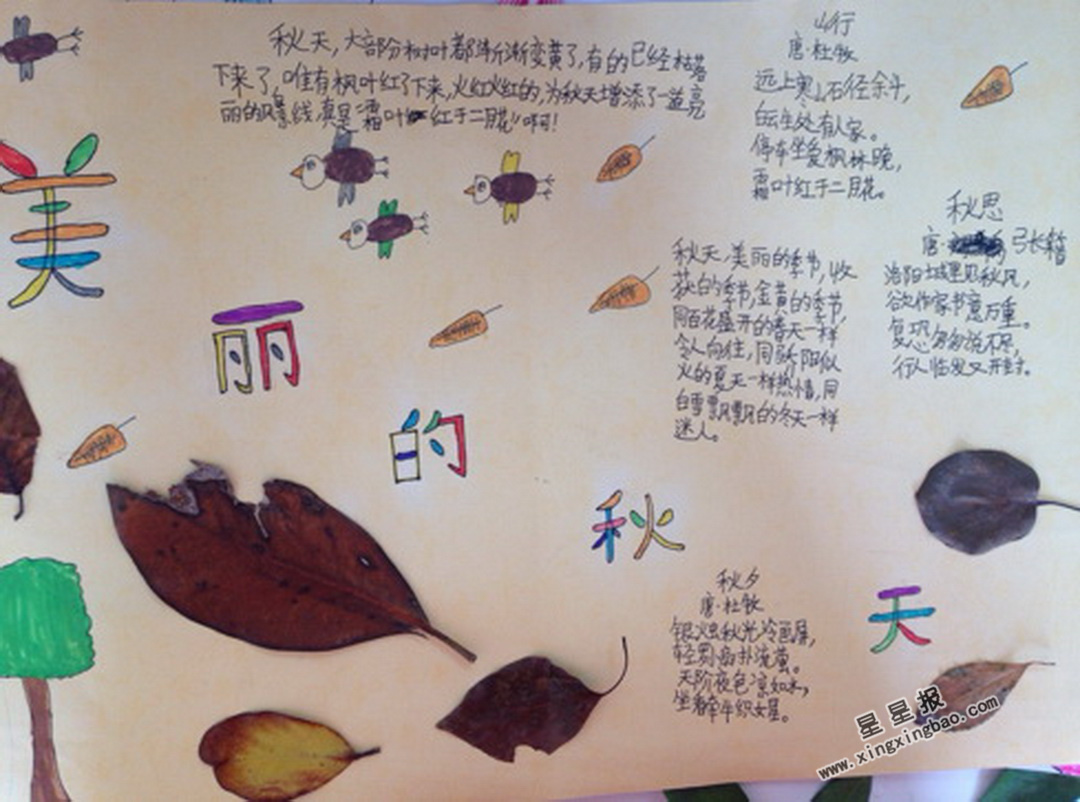 秋天,大部分树叶都渐渐变黄了,有的已经枯落
下来了,唯有枫叶红了下来,火红火红的,为秋天增添了一道亮
丽的风景线,真是“霜叶红于二月花”啊!
美
丽
的
秋
天
山行
唐·杜牧
远上寒山石径余斗,
白云生处有人家。
停车坐爱枫林晚,
霜叶红于二月花。
秋思
唐· 张籍
洛阳城里见秋风,
欲作家书意万重。
复恐匆匆说不尽,
行人临发又开封。
秋天,美丽的季节,收
获的季节,金黄的季节,
同百花盛开的春天一样
令人向往,同骄阳似
火的夏天一样热情,同
白雪飘飘的冬天一样
迷人。
秋夕
唐·杜牧
银烛秋光冷画屏,
轻罗扇扑流萤。
天阶夜色凉如水,
坐看牵牛织女星。
星星报
www.xingxingbao.com